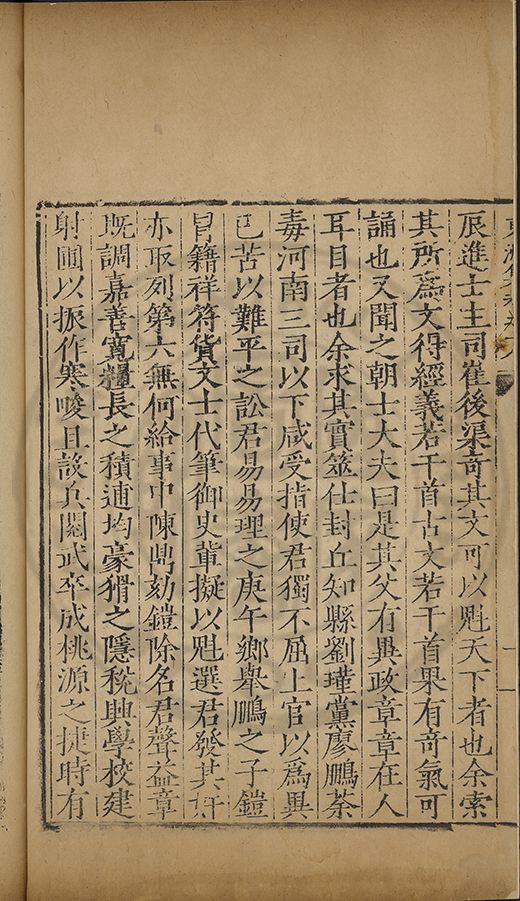 辰進士主司崔後渠奇其文可以魁天下者也余索
其所爲文得經義若干首古文若干首果有奇氣可
誦也又聞之朝士大夫曰是其父有異政章章在人
耳目者也余求其實筮仕封丘知縣劉瑾黨廖鵬荼
毒河南三司以下咸受指使君獨不屈上官以爲異
已苦以難平之訟君易易理之庚午鄉舉鵬之子鎧
冒籍祥符貨文士代筆御史軰擬以魁選君發其奸
亦取列第六無何給事中陳鼎劾鎧除名君聲益章
既調嘉善寬糧長之積逋均豪猾之隱稅興學校建
射圃以振作寒畯且設兵閱武卒成桃源之捷時有